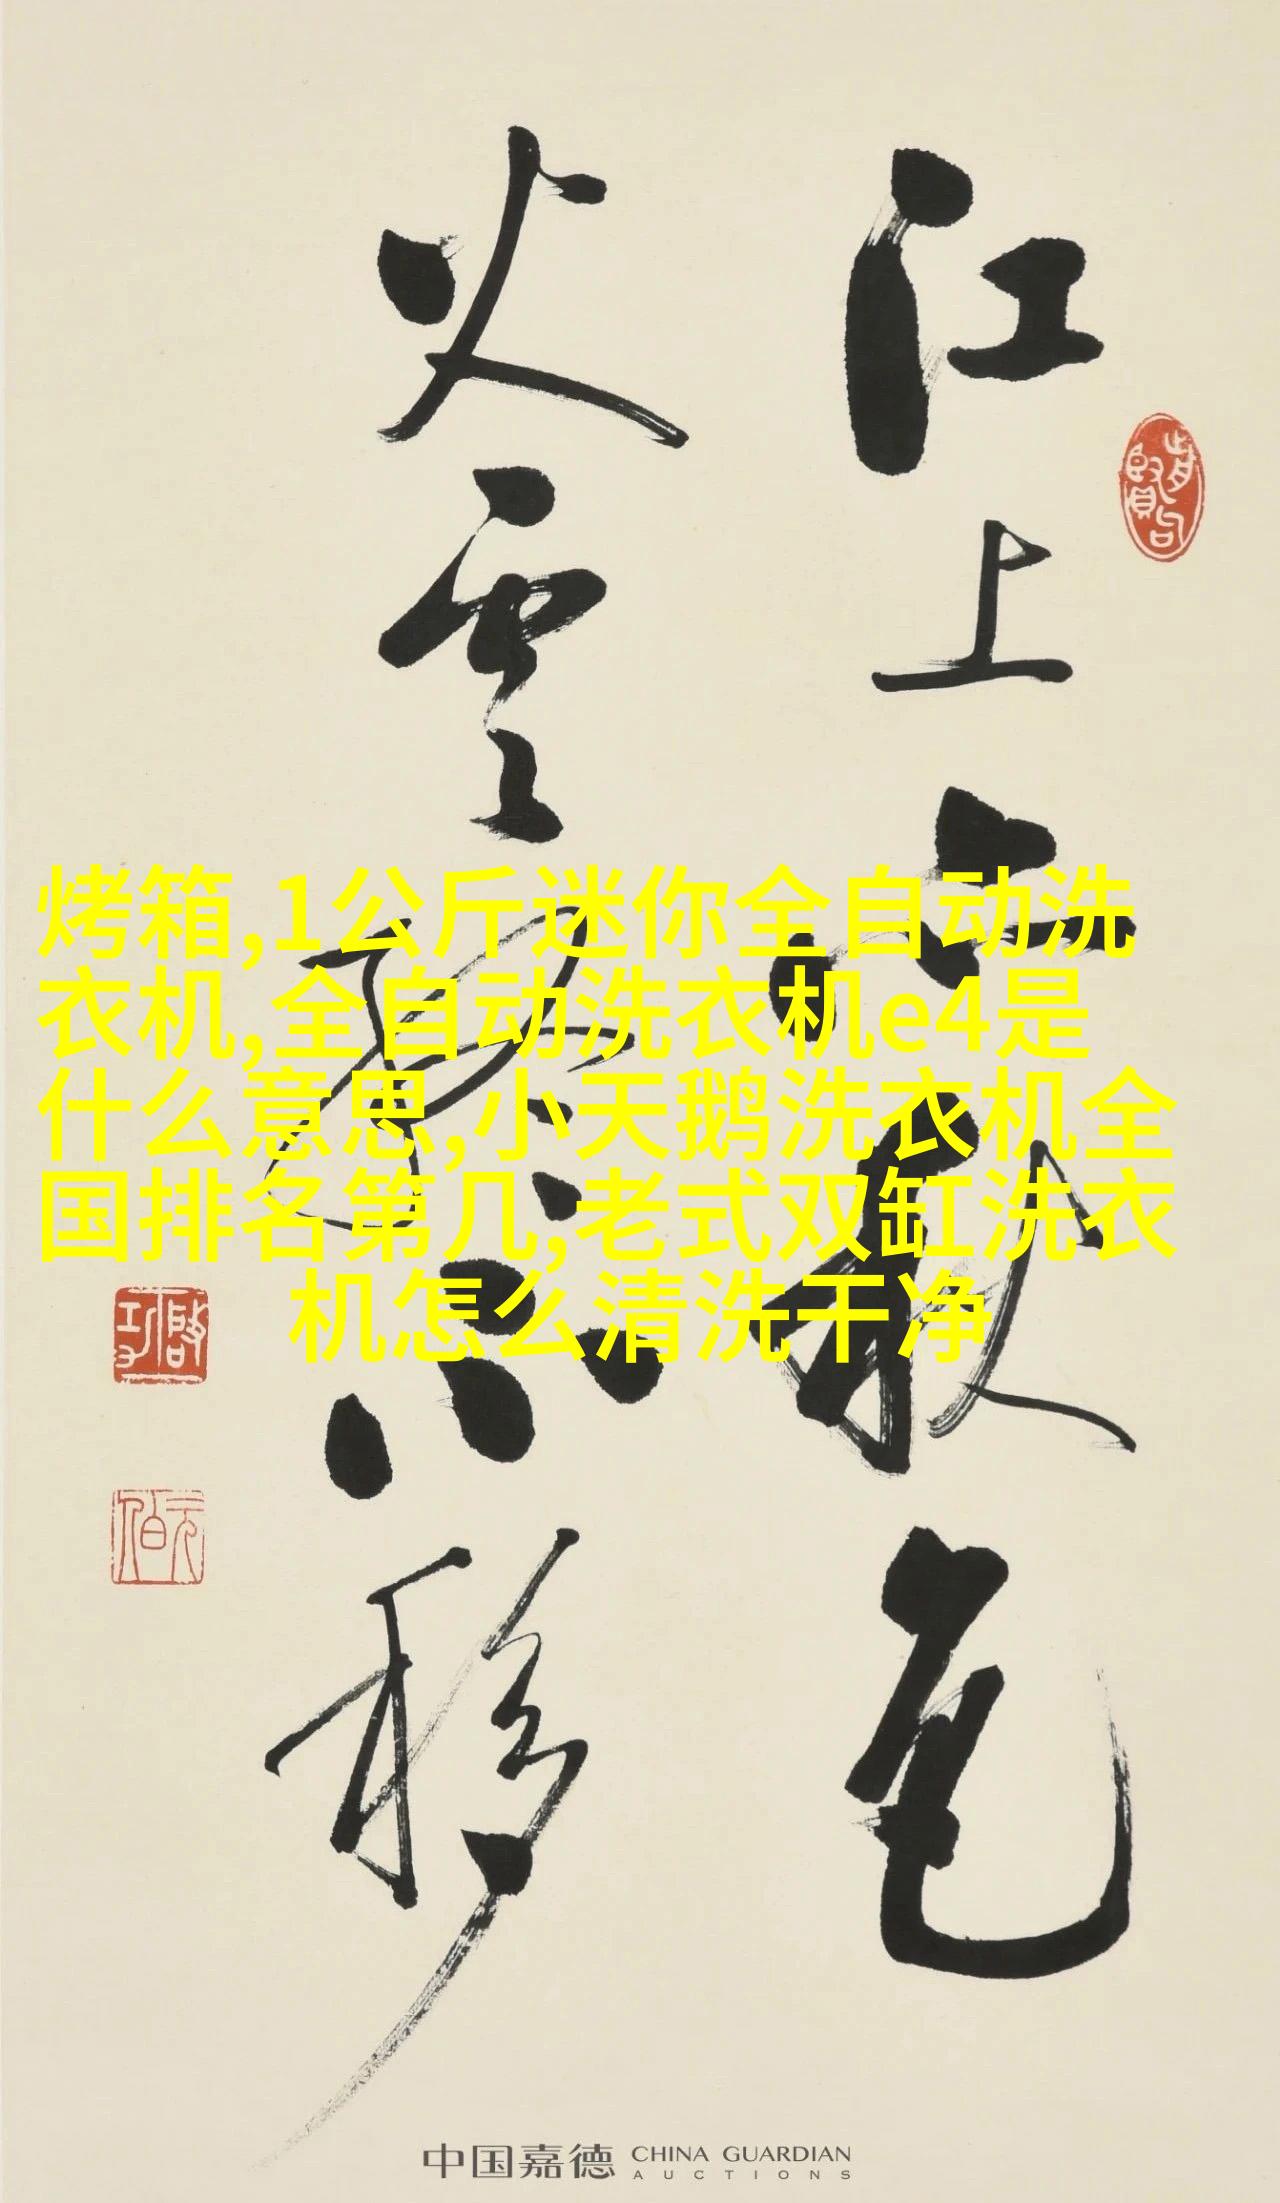 江上亦秋色
火雲終不移
烤箱,1公斤迷你全自动洗
衣机,全自动洗衣机e4是
什么意思,小天鹅洗衣机全
国排名第几,老式双缸洗衣
机怎么清洗干净
啓功
元伯
中国嘉德 CHINA GUARDIAN
AUCTIONS